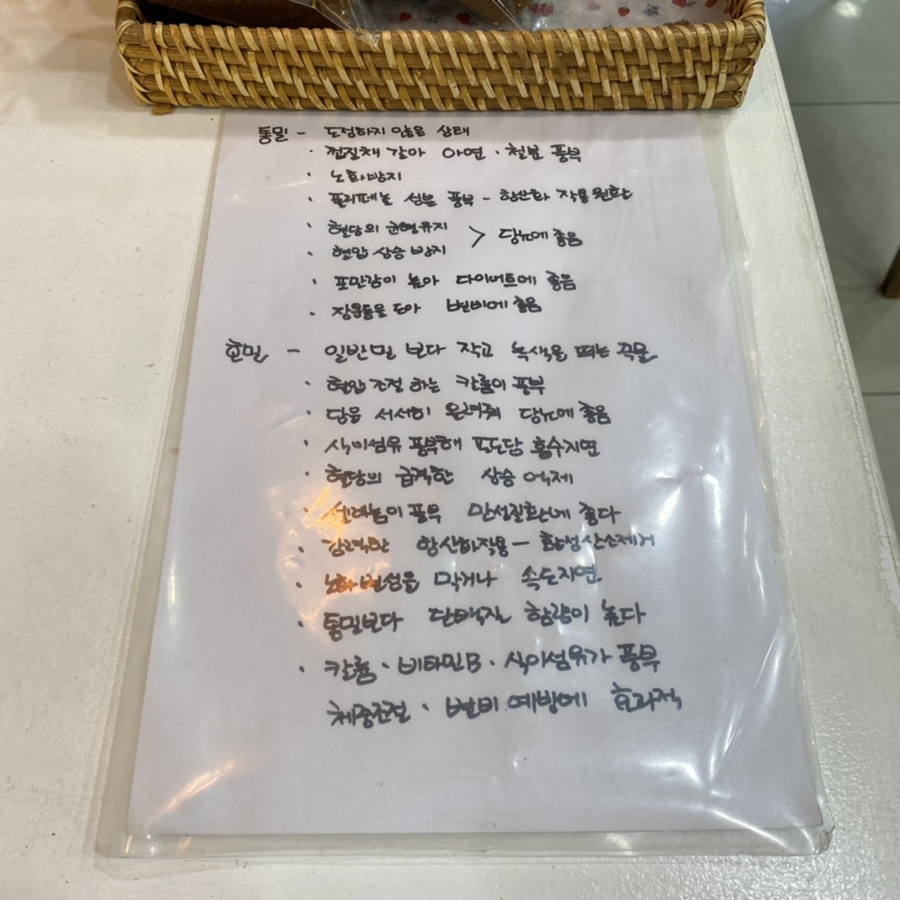 통밀 - 도정하지 않은 상태
· 껍질채 갈아 아연 · 철분 풍부
· 노화방지
· 폴리페놀 성분 풍부 - 항산화 작용 원활
· 혈당의 균형유지
· 혈압 상승 방지 > 당뇨에 좋음
· 포만감이 높아 다이어트에 좋음
· 장운동을 도와 변비에 좋음
호밀 - 일반밀 보다 작고 녹색을 띄는 곡물
· 혈압 조절 하는 칼륨이 풍부
· 당을 서서히 올려줘 당뇨에 좋음
· 식이섬유 풍부해 포도당 흡수지연
· 혈당의 급격한 상승 억제
· 셀레늄이 풍부 만성질환에 좋다
· 강력한 항산화작용 - 활성산소제거
· 노화 변성을 막거나 속도지연.
· 통밀보다 단백질 함량이 높다
· 칼륨 · 비타민B · 식이섬유가 풍부
체중조절 · 변비 예방에 효과적